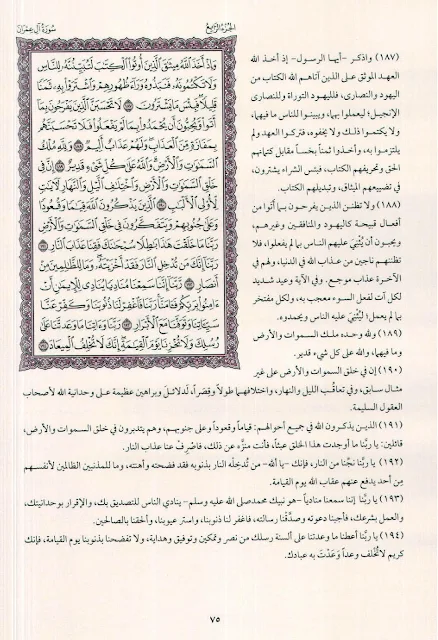 الجزء الرابع
سورة آل عمران
وَإِذْ أَخَذَ اللَّهُ مِيثَاقَ الَّذِينَ أُوتُوا الْكِتَابَ لَتُبَيِّنُنَّهُ لِلنَّاسِ
وَلَا تَكْتُمُونَهُ فَنَبَذُوهُ وَرَاءَ ظُهُورِهِمْ وَاشْتَرَوْا بِهِ ثَمَنًا
قَلِيلًا فَبِئْسَ مَا يَشْتَرُونَ ١٨٧ لَا تَحْسَبَنَّ الَّذِينَ يَفْرَحُونَ بِمَا
أَتَوا وَّيُحِبُّونَ أَن يُحْمَدُوا بِمَا لَمْ يَفْعَلُوا فَلَا تَحْسَبَنَّهُم
بِمَفَازَةٍ مِّنَ الْعَذَابِ وَلَهُمْ عَذَابٌ أَلِيمٌ ١٨٨ وَلِلَّهِ مُلْكُ
السَّمَاوَاتِ وَالْأَرْضِ وَاللَّهُ عَلَىٰ كُلِّ شَيْءٍ قَدِيرٌ ١٨٩ إِنَّ فِي
خَلْقِ السَّمَاوَاتِ وَالْأَرْضِ وَاخْتِلَافِ اللَّيْلِ وَالنَّهَارِ لَآيَاتٍ
لِّأُولِي الْأَلْبَابِ ١٩٠ الَّذِينَ يَذْكُرُونَ اللَّهَ قِيَامًا وَقُعُودًا
وَعَلَىٰ جُنُوبِهِمْ وَيَتَفَكَّرُونَ فِي خَلْقِ السَّمَاوَاتِ وَالْأَرْضِ
رَبَّنَا مَا خَلَقْتَ هَٰذَا بَاطِلًا سُبْحَانَكَ فَقِنَا عَذَابَ النَّارِ ١٩١
رَبَّنَا إِنَّكَ مَن تُدْخِلِ النَّارَ فَقَدْ أَخْزَيْتَهُ وَمَا لِلظَّالِمِينَ مِنْ
أَنصَارٍ ١٩٢ رَّبَّنَا إِنَّنَا سَمِعْنَا مُنَادِيًا يُنَادِي لِلْإِيمَانِ أَنْ
آمِنُوا بِرَبِّكُمْ فَآمَنَّا رَبَّنَا فَاغْفِرْ لَنَا ذُنُوبَنَا وَكَفِّرْ عَنَّا
سَيِّئَاتِنَا وَتَوَفَّنَا مَعَ الْأَبْرَارِ ١٩٣ رَبَّنَا وَآتِنَا مَا وَعَدتَّنَا عَلَىٰ
رُسُلِكَ وَلَا تُخْزِنَا يَوْمَ الْقِيَامَةِ إِنَّكَ لَا تُخْلِفُ الْمِيعَادَ ١٩٤
(١٨٧) واذكر -أيها الرسول- إذ أخذ الله
العهد الموثق على الذين آتاهم الله الكتاب من
اليهود والنصارى، فلليهود التوراة وللنصارى
الإنجيل؛ ليعملوا بهما، ويبينوا للناس ما فيهما،
ولا يكتموا ذلك ولا يخفوه، فتركوا العهد ولم
يلتزموا به، وأخذوا ثمناً بخساً مقابل كتمانهم
الحق وتحريفهم الكتاب، فبئس الشراء يشترون،
في تضييعهم الميثاق، وتبديلهم الكتاب.
(١٨٨) ولا تظنن الذين يفرحون بما أتوا من
أفعال قبيحة كاليهود والمنافقين وغيرهم،
ويحبون أن يُثْنِيَ عليهم الناس بما لم يفعلوا، فلا
تظننهم ناجين من عذاب الله في الدنيا، ولهم في
الآخرة عذاب موجع. وفي الآية وعيد شديد
لكل آت لفعل السوء معجب به، ولكل مفتخر
بما لم يعمل؛ ليُثْنِيَ عليه الناس ويحمدوه.
(١٨٩) ولله وحده ملك السموات والأرض
وما فيهما، والله على كل شيء قدير.
(١٩٠) إن في خلق السموات والأرض على غير
مثال سابق، وفي تعاقُب الليل والنهار، واختلافهما طولاً وقصَراً، لَدلائلَ وبراهين عظيمة على وحدانية الله لأصحاب
العقول السليمة.
(١٩١) الذين يذكرون الله في جميع أحوالهم: قياماً وقعوداً وعلى جنوبهم، وهم يتدبرون في خلق السموات والأرض،
قائلين: يا ربَّنا ما أوجدت هذا الخلق عبثاً، فأنت منزَّه عن ذلك، فاصْرِف عنا عذاب النار.
(١٩٢) يا ربَّنا نجِّنا من النار، فإنك -يا ألله- من تُدخِلْه النار بذنوبه فقد فضحته وأهنته، وما للمذنبين الظالمين لأنفسهم
مِن أحد يدفع عنهم عقاب الله يوم القيامة.
(١٩٣) يا ربَّنا إننا سمعنا منادياً -هو نبيك محمد صلى الله عليه وسلم- ينادي الناس للتصديق بك، والإقرار بوحدانيتك،
والعمل بشرعك، فأجبنا دعوته وصدَّقْنا رسالته، فاغفر لنا ذنوبنا، واستر عيوبنا، وألحقنا بالصالحين.
(١٩٤) يا ربَّنا أعطنا ما وعدتنا على ألسنة رسلك من نصر وتمكين وتوفيق وهداية، ولا تفضحنا بذنوبنا يوم القيامة، فإنك
كريم لا تُخْلف وعداً وَعَدْتَ به عبادك.
٧٥